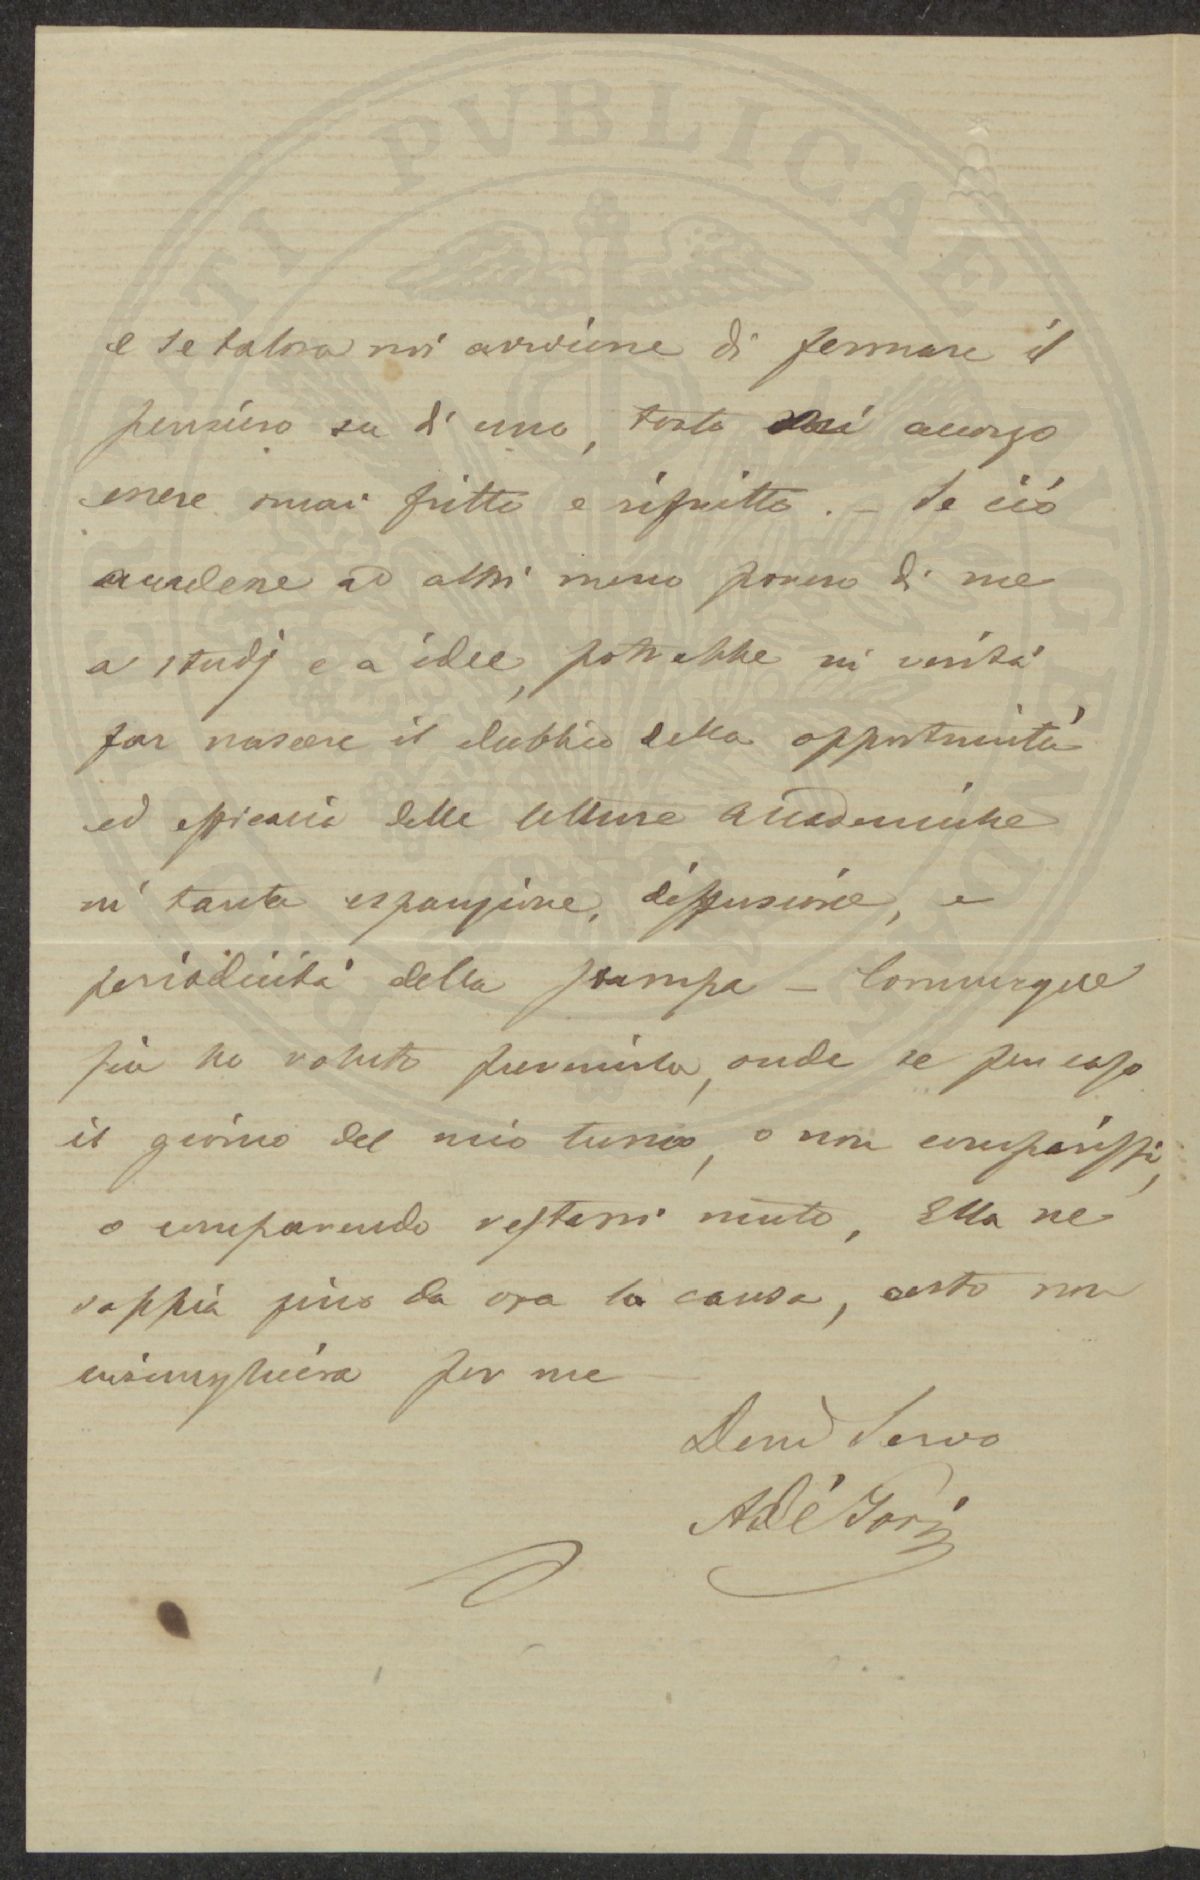 PVBLICAE
e se talora mi avviene di fermare il
pensiero su di uno, tosto mi accorgo
essere omai fritto e rifritto. – Se ciò
accadesse ad altri meno povero di me
a studj e a idee, potrebbe in verità
far nascere il dubbio della opportunità
ed efficacia delle letture accademiche
in tanta espansione, diffusione, e
periodicità della stampa – Comunque
sia ho voluto prevenirla, onde se per caso
il giorno del mio turno, o non comparissi,
o comparendo restassi muto, Ella ne
sappia fino da ora la causa, certo non
lusinghiera per me –
Devmo Servo